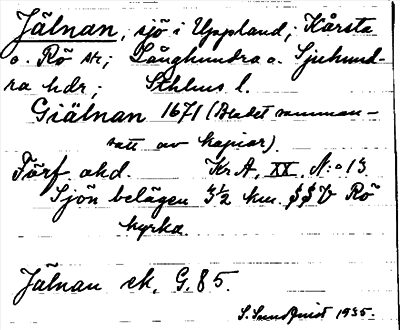 Jälnan, sjö i Uppland, Kårsta
o. Rö sr; Långhundra o. Sjuhund-
ra hdr; Sthlms l.
Giälnan 1671 (Bladet samman-
satt av kopior).
Förf. okd. Kr. A. XX. N:o 13
Sjön belägen 3½ km. SSV Rö
kyrka.
Jälnan ek. G. 85.
S. Sundqvist 1935.